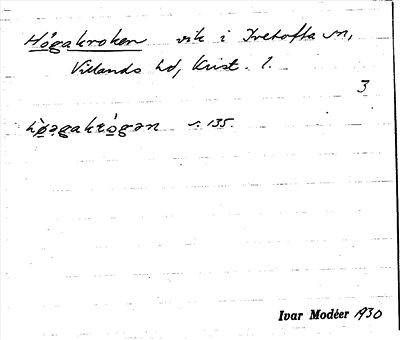 Högakroken vik i Ivetofta sn,
Villands hd, Krist. l.
3
s. 135.
Ivar Modéer 1930